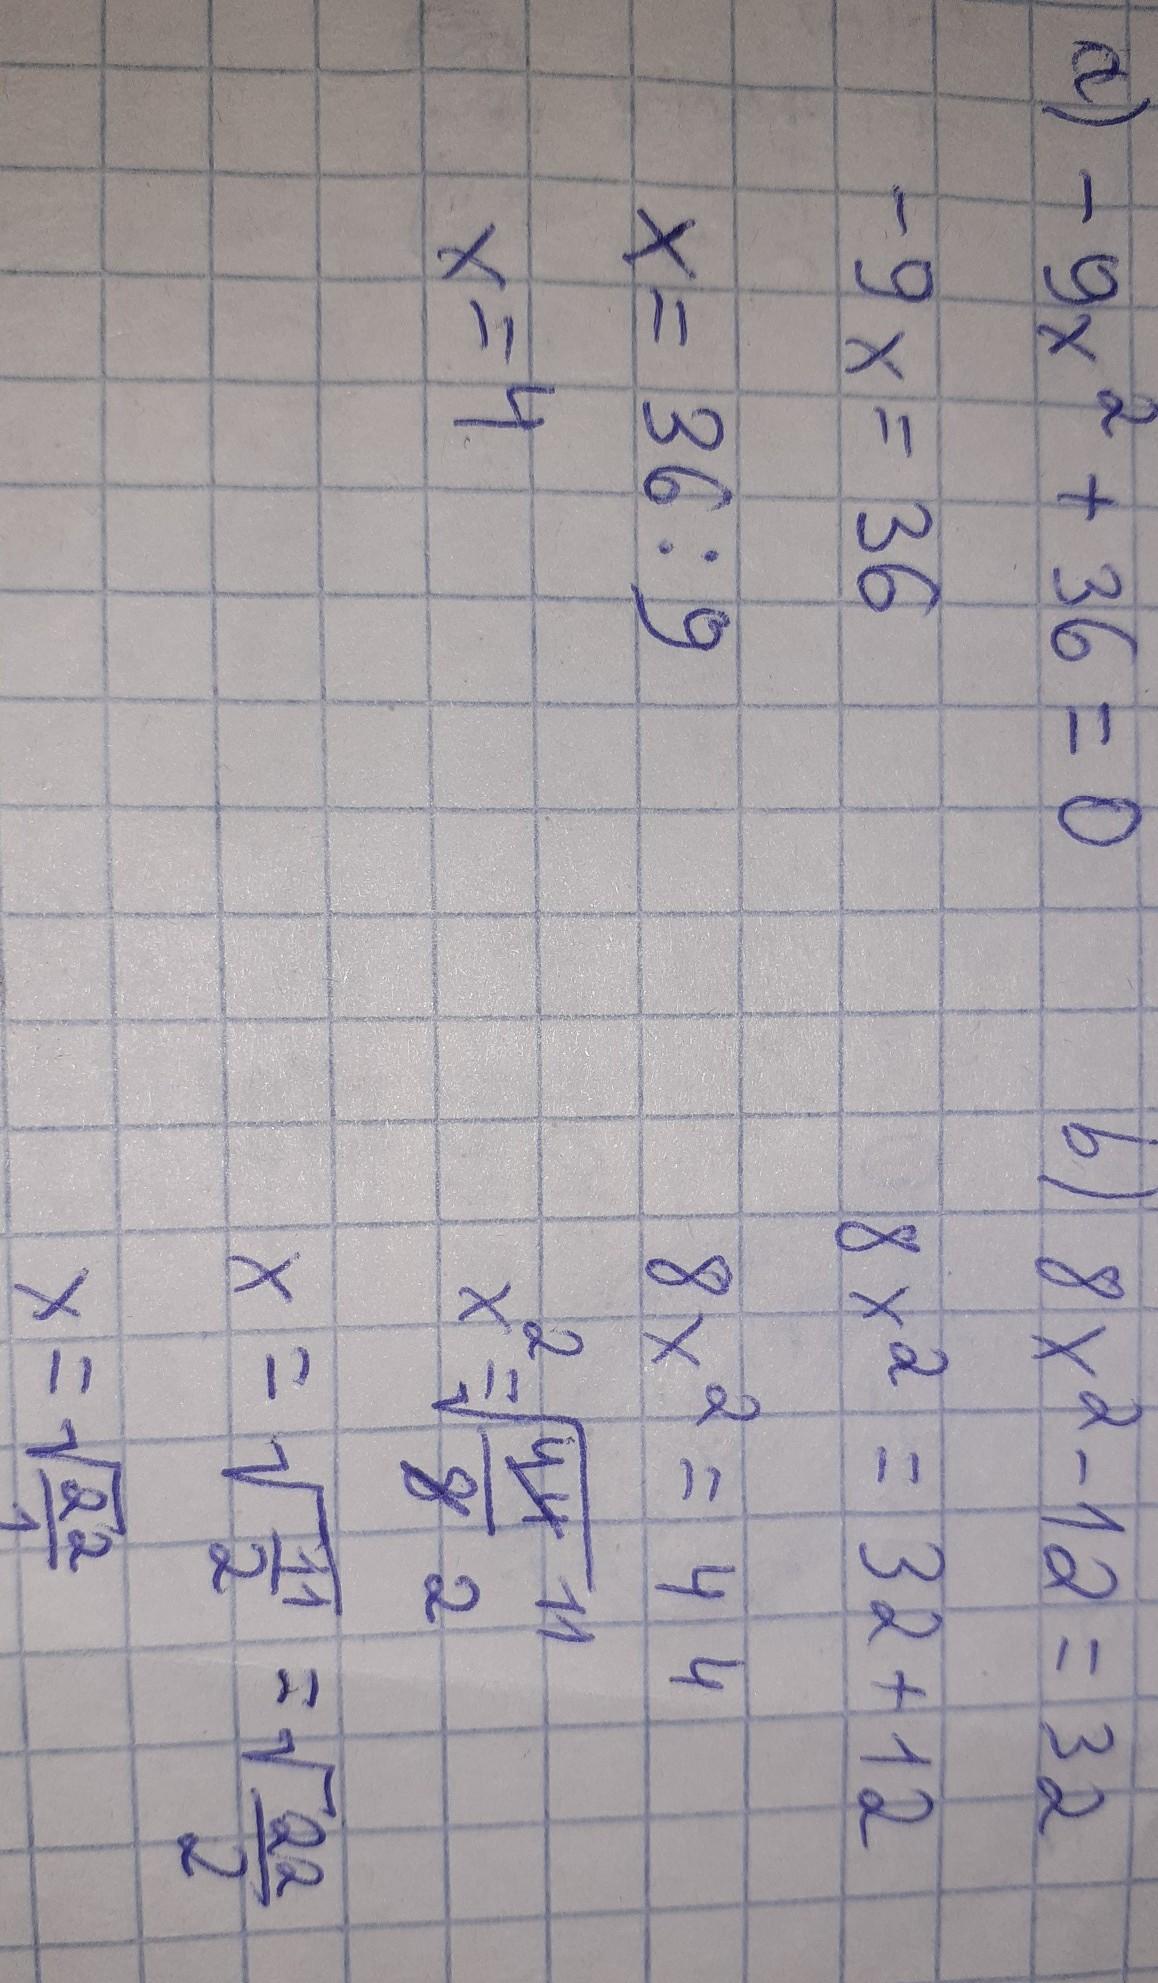 a) -9x² + 36 = 0
-9x = 36
x = 36 : 9
x = 4
b) 8x² - 12 = 32
8x² = 32 + 12
8x² = 44
x² = √44/8 11 2
x = √11/2 = √22/2
x = √22/1